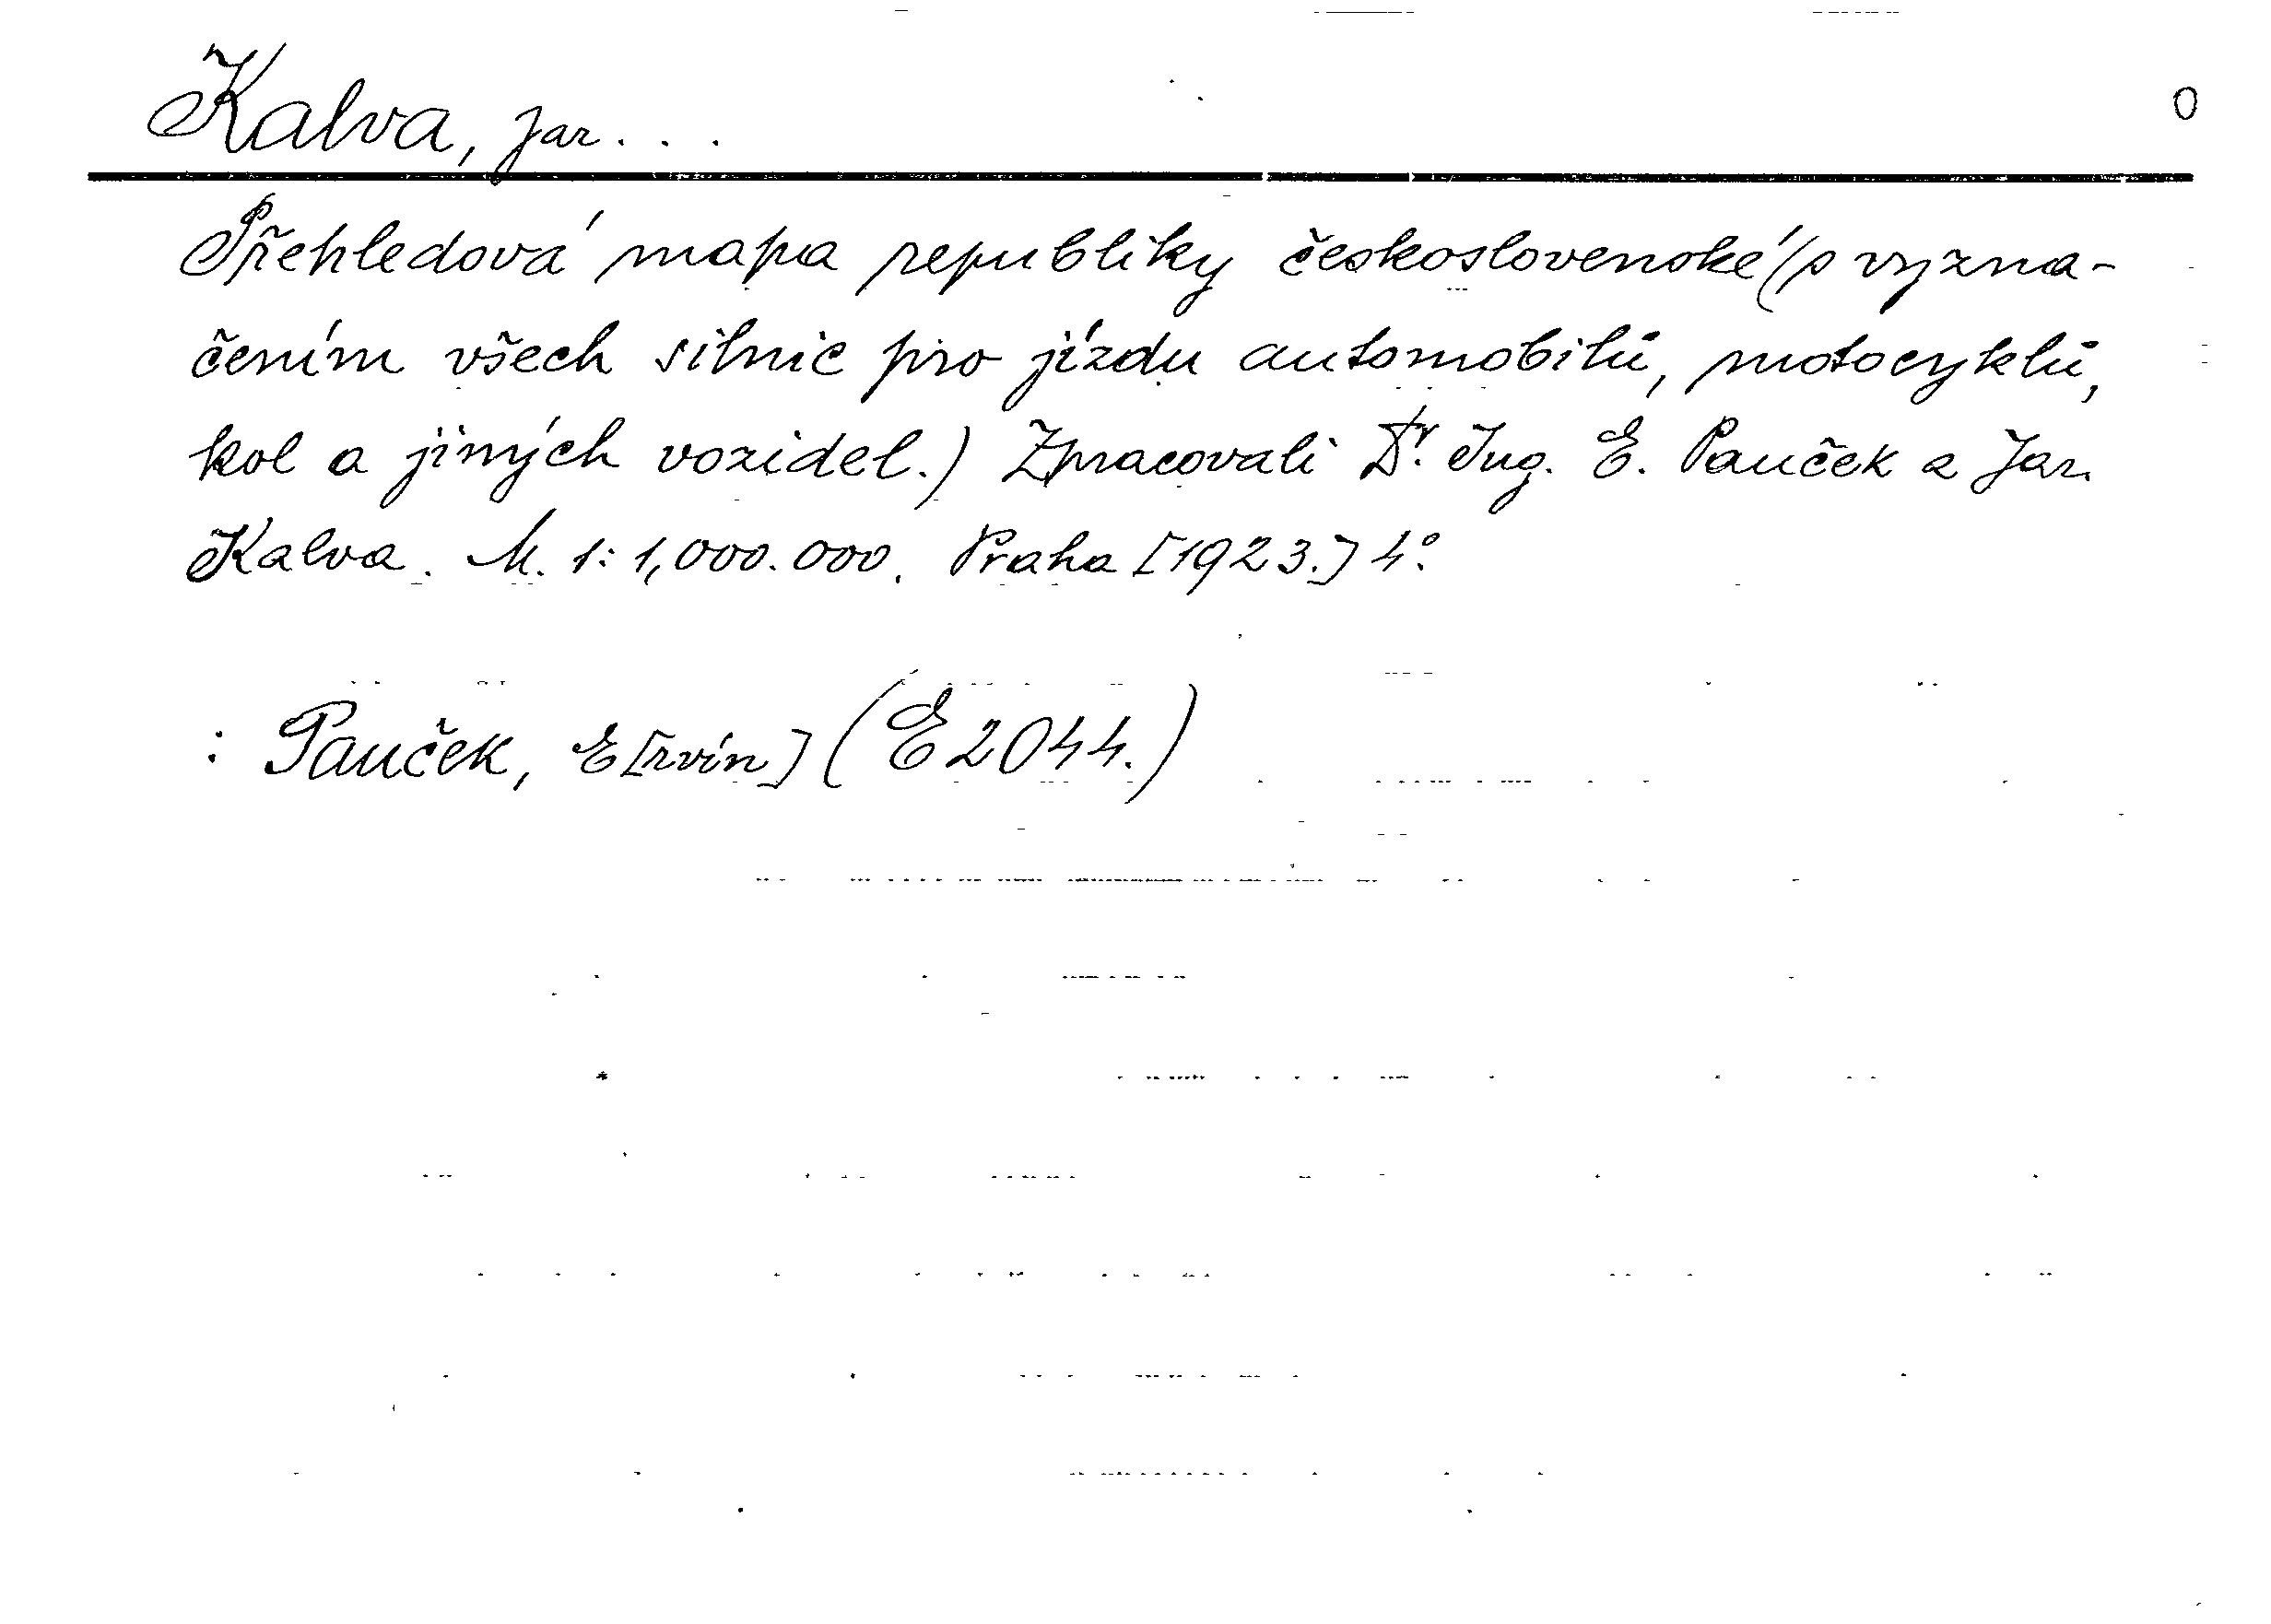 Kalva, Jar. . . 0
Přehledová mapa republiky československé (s vyzna-
čením všech silnic pro jízdu automobilů, motocyklů,
kol a jiných vozidel.) Zpracovali Dr. Ing. E. Pauček a Jar.
Kalva. M. 1:1,000.000. Praha [1923.] 4°.
: Pauček, E[rvín] (E 2044.)